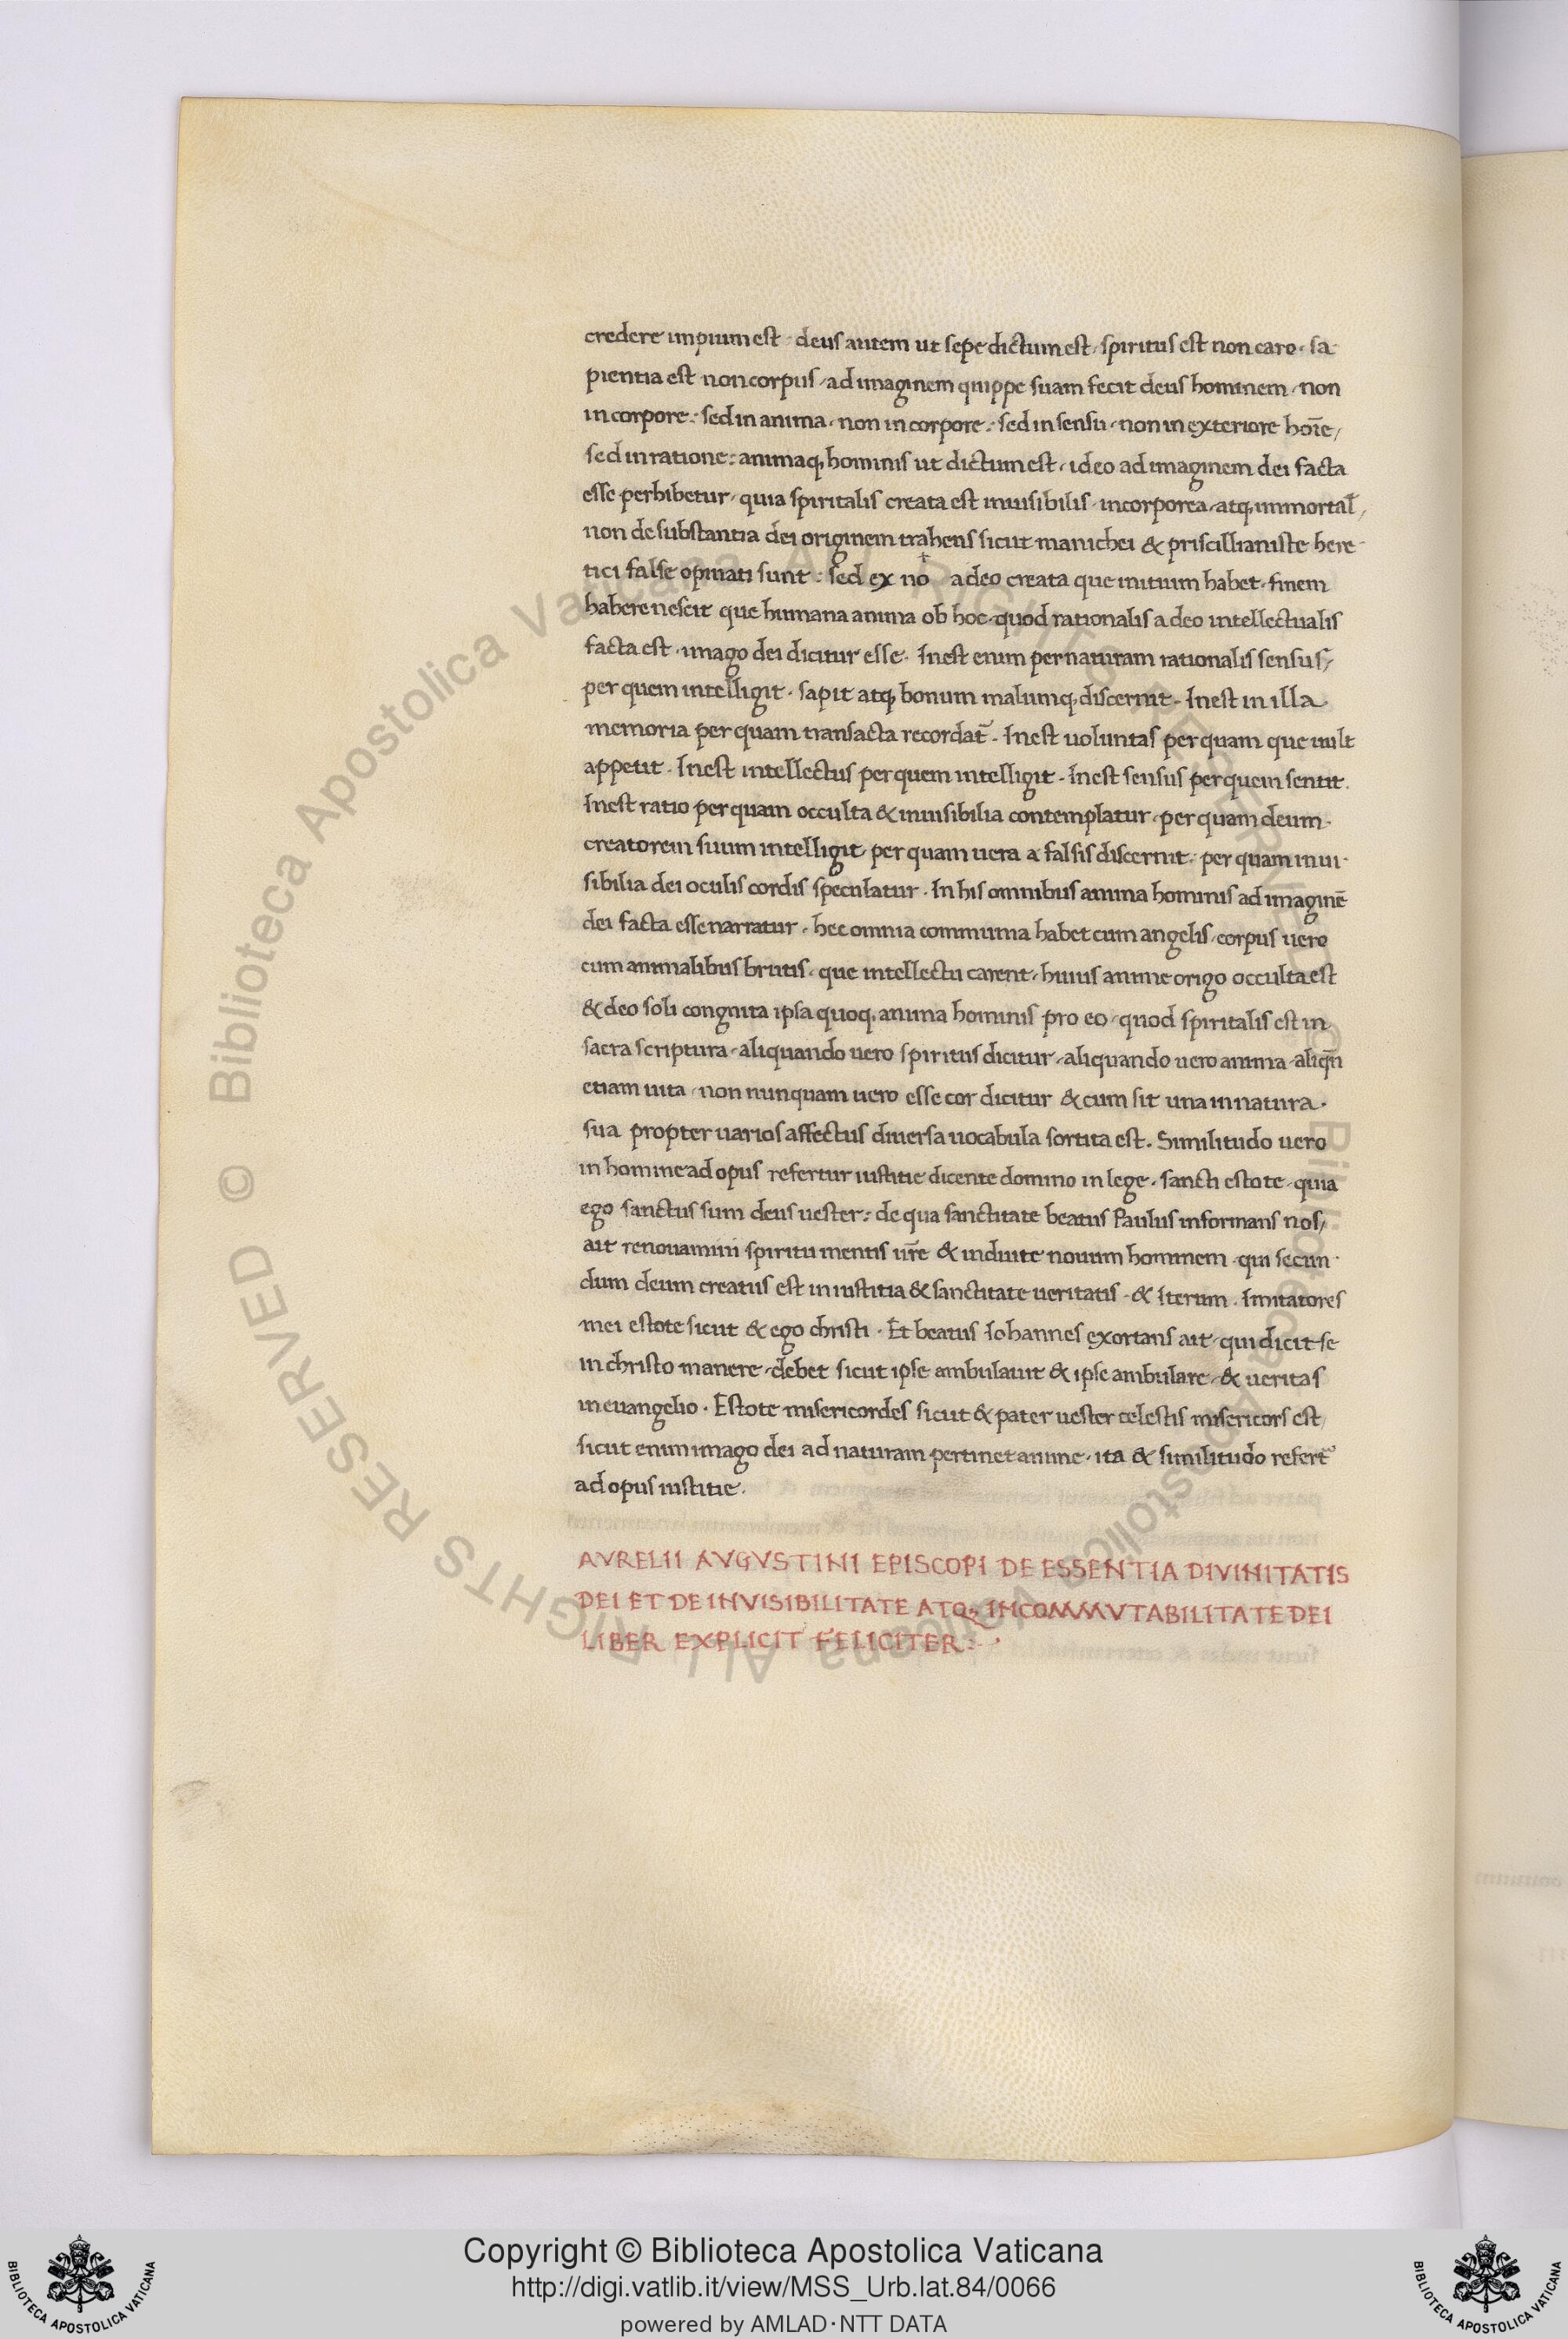 credere impium est · deus autem ut sepe dictum est, spiritus est non caro · sa-
pientia est non corpus, ad imaginem quippe suam fecit deus hominem, non
in corpore: sed in anima, non in corpore: sed in sensu, non in exteriore hoīe,
sed in ratione: animaq; hominis ut dictum est, ideo ad imaginem dei facta
esse perhibetur, quia spiritalis creata est inuisibilis, incorporea, atq; immortal̄,
non de substantia dei originem trahens sicut manichei & priscillianiste here-
tici false opinati sunt: sed ex no a deo creata que initium habet, finem
habere nescit que humana anima ob hoc, quod rationalis a deo intellectualis
facta est, imago dei dicitur esse. Inest enim per naturam rationalis sensus,
per quem intelligit, sapit atq; bonum malumq; discernit. Inest in illa
memoria per quam transacta recordat̄. Inest uoluntas per quam que uult
appetit. Inest intellectus per quem intelligit. Inest sensus per quem sentit.
Inest ratio per quam occulta & inuisibilia contemplatur, per quam deum
creatorem suum intelligit, per quam uera a falsis discernit: per quam inui-
sibilia dei oculis cordis speculatur. In his omnibus anima hominis ad imaginē
dei facta esse narratur, hec omnia communia habet cum angelis, corpus uero
cum animalibus brutis, que intellectu carent, huius anime origo occulta est
& deo soli congnita ipsa quoq; anima hominis pro eo, quod spiritalis est in
sacra scriptura, aliquando uero spiritus dicitur, aliquando uero anima, aliqn̄
etiam uita, non nunquam uero esse cor dicitur & cum sit una in natura
sua propter uarios affectus diuersa uocabula sortita est. Similitudo uero
in homine ad opus refertur iustitie dicente domino in lege, sancti estote, quia
ego sanctus sum deus uester: de qua sanctitate beatus Paulus informans nos,
ait renouamini spiritu mentis ur̄e & induite nouum hominem, qui secun-
dum deum creatus est in iustitia & sanctitate ueritatis, & Iterum. Imitatores
mei estote sicut & ego christi. Et beatus Iohannes exortans ait, qui dicit se
in christo manere, debet sicut ipse ambulauit & ipse ambulare, & ueritas
in euangelio. Estote misericordes sicut & pater uester celestis misericors est,
sicut enim imago dei ad naturam pertinet anime, ita & similitudo refert᷑
ad opus iustitie.
AVRELII AVGVSTINI EPISCOPI DE ESSENTIA DIVINITATIS
DEI ET DE INVISIBILITATE ATQ; INCOMMVTABILITATE DEI
LIBER EXPLICIT FELICITER:·
© Biblioteca Apostolica Vaticana ALL RIGHTS RESERVED
Copyright © Biblioteca Apostolica Vaticana
http://digi.vatlib.it/view/MSS_Urb.lat.84/0066
powered by AMLAD·NTT DATA
BIBLIOTECA APOSTOLICA VATICANA
BIBLIOTECA APOSTOLICA VATICANA